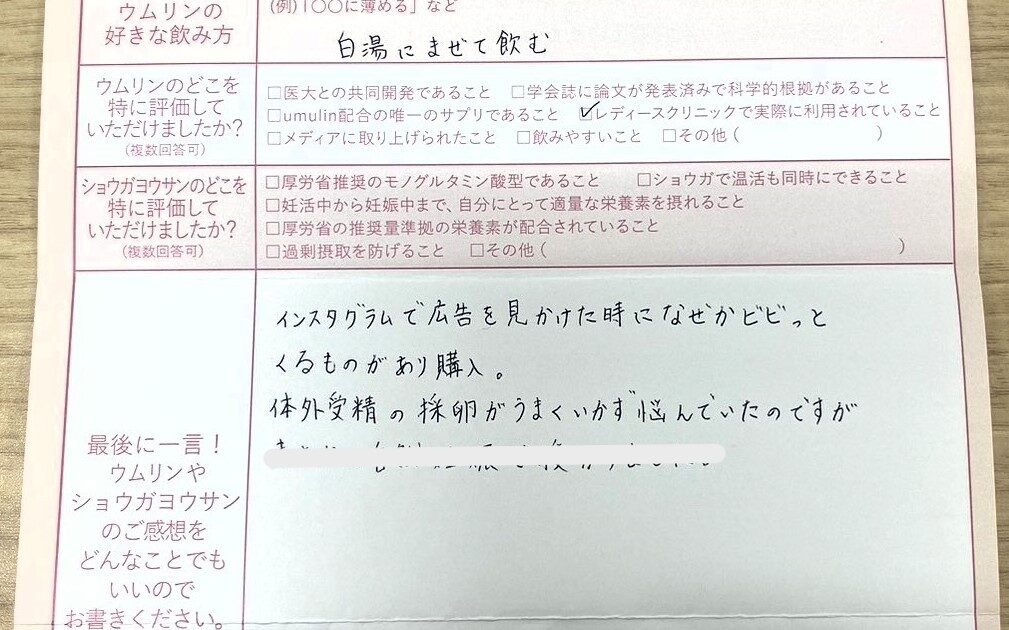 ウムリンの
好きな飲み方
(例)「〇〇に薄める」など
白湯にまぜて飲む
ウムリンのどこを
特に評価して
いただけましたか?
(複数回答可)
□医大との共同開発であること □学会誌に論文が発表済みで科学的根拠があること
□umulin配合の唯一のサプリであること ☑レディースクリニックで実際に利用されていること
□メディアに取り上げられたこと □飲みやすいこと □その他( )
ショウガヨウサンのどこを
特に評価して
いただけましたか?
(複数回答可)
□厚労省推奨のモノグルタミン酸型であること □ショウガで温活も同時にできること
□妊活中から妊娠中まで、自分にとって適量な栄養素を摂れること
□厚労省の推奨量準拠の栄養素が配合されていること
□過剰摂取を防げること □その他( )
最後に一言!
ウムリンや
ショウガヨウサン
のご感想を
どんなことでも
いいので
お書きください。
インスタグラムで広告を見かけた時になぜかビビっと
くるものがあり購入。
体外受精の採卵がうまくいかず悩んでいたのですが